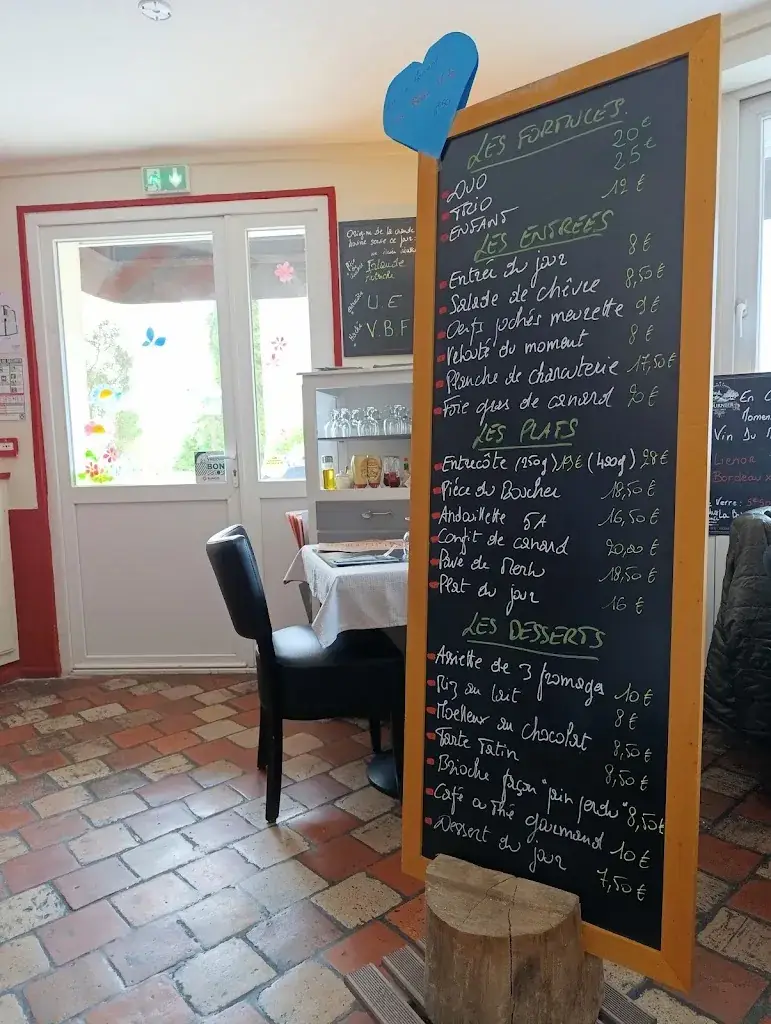 LES FORMULES
DUO 20€
TRIO 25€
ENFANT 12€
LES ENTREES
Entrée du jour 8€
Salade de chèvre 8,50€
Oeufs pochés meurette 9€
Velouté du moment 8€
Planche de charcuterie 17,50€
Foie gras de canard 20€
LES PLATS
Entrecôte (250g) 19€ (400g) 28€
Pièce du Boucher 18,50€
Andouillette 5A 16,50€
Confit de canard 20,00€
Pavé de Merlu 18,50€
Plat du jour 16€
LES DESSERTS
Assiette de 3 fromages 10€
Riz au lait 8€
Moelleux au chocolat 8,50€
Tarte Tatin 8,50€
Brioche façon "pain perdu" 8,50€
Café ou Thé gourmand 10€
Dessert du jour 7,50€
Origine de la viande
U.E
V.B.F
BON
En C
Momen
Vin du M
Bordeaux
Verre :